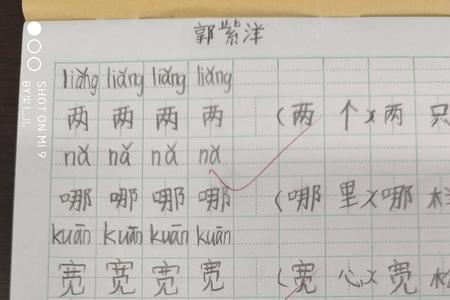 郭紫洋
liǎng liǎng liǎng liǎng
两 两 两 两 (两 个)(两 只
nǎ nǎ nǎ nǎ
哪 哪 哪 哪 (哪 里)(哪
kuān kuān kuān kuān
宽 宽 宽 宽 (宽 心)(宽
SHOT ON MI 9